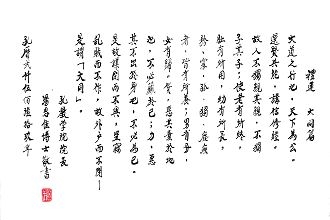 禮運 大同篇
大道之行也,天下為公。
選賢與能,講信修睦。
故人不獨親其親,不獨
子其子;使老有所終,
壯有所用,幼有所長,
矜、寡、孤、獨、廢疾
者,皆有所養;男有分,
女有歸。貨,惡其棄於地
也,不必藏於己;力,惡
其不出於身也,不必為己。
是故謀閉而不興,盜竊
亂賊而不作,故外戶而不閉—
是謂「大同」。
孔教學院院長
湯恩佳博士敬書
孔曆大廿伍佰陸拾玖年